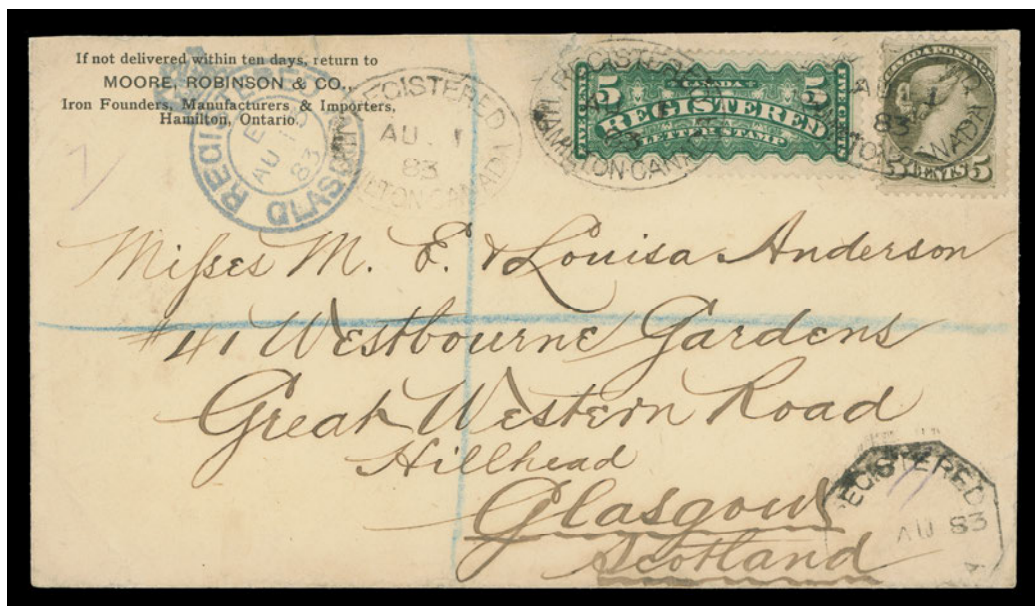 If not delivered within ten days, return to
MOORE, ROBINSON & CO.,
Iron Founders, Manufacturers & Importers,
Hamilton, Ontario.
REGISTERED
E
AU 15
83
GLASGOW
REGISTERED
AU 1
83
HAMILTON·CANADA
REGISTERED
AU 1
83
HAMILTON·CANADA
CANADA
5 REGISTERED 5
LETTER STAMP
FIVE CENTS
FIVE CENTS
CANADA POSTAGE
5 CENTS 5
AU 1
83
HAMILTON CANADA
Misses M. E. & Louisa Anderson
#41 Westbourne Gardens
Great Western Road
Hillhead
Glasgow
Scotland
REGISTERED
AU 83